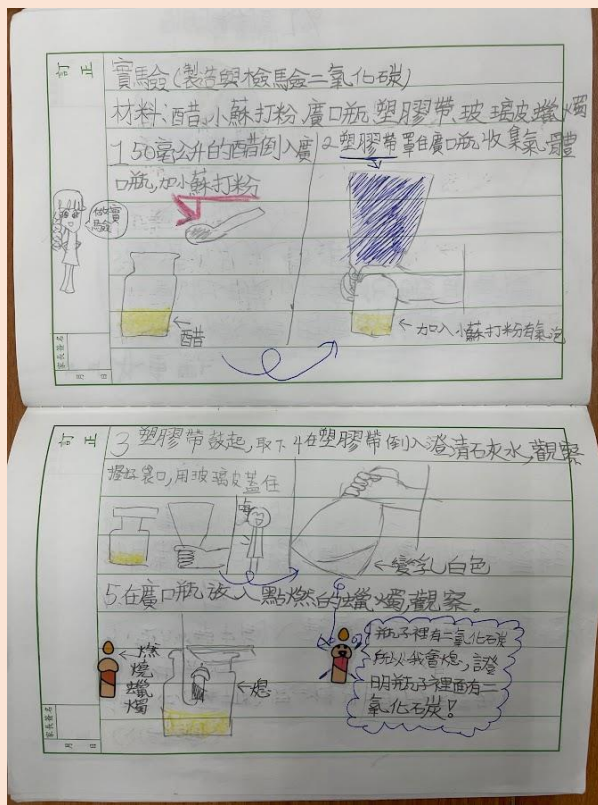 訂正
實驗(製造與檢驗二氧化碳)
材料:醋、小蘇打粉、廣口瓶、塑膠帶、玻璃皮、蠟燭
1. 50毫公升的醋倒入廣
口瓶,加小蘇打粉
2.塑膠帶罩住廣口瓶,收集氣體
做實
驗
←醋
←加入小蘇打粉有氣泡
家長簽名
月 日
訂正
3 塑膠帶鼓起,取下
握好袋口,用玻璃皮蓋住
4在塑膠帶倒入澄清石灰水,觀察
←變乳白色
5.在廣口瓶放入點燃的蠟燭,觀察。
←燃
燒
蠟
燭
←熄
瓶子裡有二氧化石炭
所以我會熄,證
明瓶子裡面有二
氧化石炭!
家長簽名
月 日